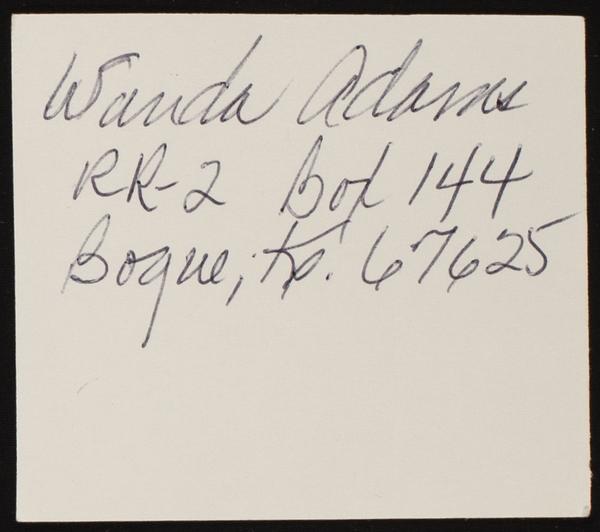 Wanda Adams
RR-2 Box 144
Bogue, Ks. 67625